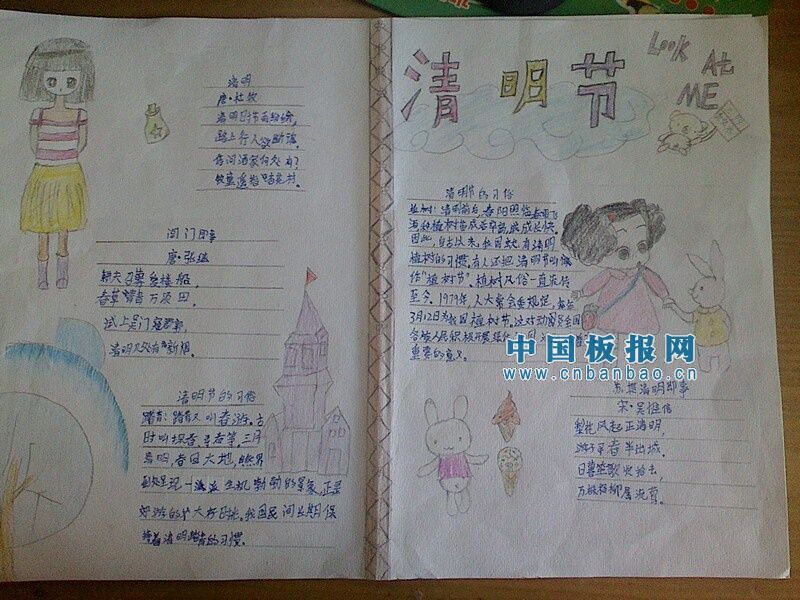 清明
唐·杜牧
清明时节雨纷纷,
路上行人欲断魂。
借问酒家何处有?
牧童遥指杏花村。
闾门即事
唐·张继
耕夫召募逐楼船,
春草青青万顷田,
试上吴门窥郡郭,
清明几处有新烟。
清明节的习俗
踏青:踏青又叫春游。古
时叫探春、寻春等。三月
清明,春回大地,自然界
到处呈现一派生机勃勃的景象,正是
郊游的大好时光。我国民间长期保
持着清明踏青的习惯。
清明节
Look At
ME
清明节的习俗
植树:清明前后,春阳照临,春雨飞
洒,种植树苗成活率高,成长快。
因此,自古以来,我国就有清明
植树的习惯。有人还把清明节叫做
作"植树节"。植树风俗一直流传
至今。1979年,人大常委会规定,每年
3月12日为我国植树节。这对动员全国
各族人民积极开展绿化
重要的意义。
中国板报网
www.cnbanbao.cn
苏堤清明即事
宋·吴惟信
梨花风起正清明,
游子寻春半出城。
日暮笙歌收拾去,
万株杨柳属流莺。